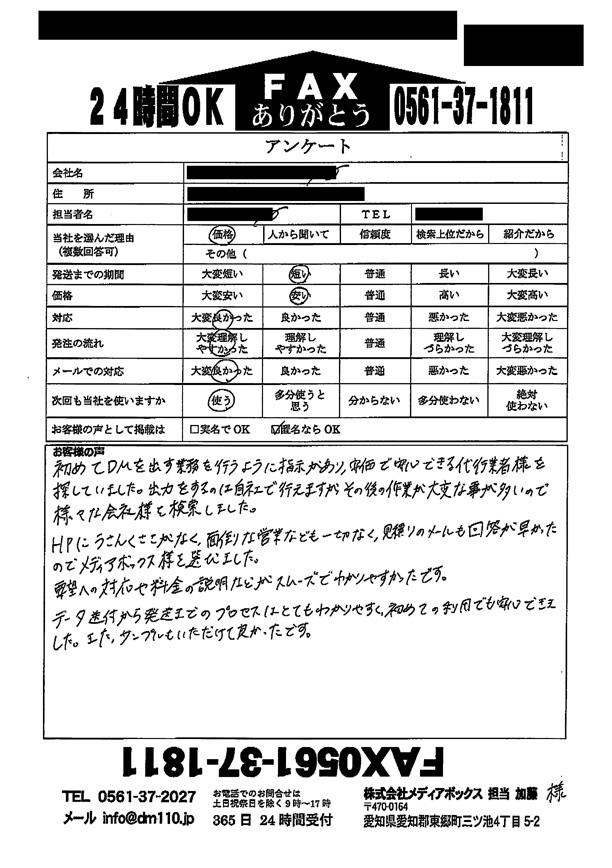 FAX
24時間OK ありがとう 0561-37-1811
アンケート
会社名
住 所
担当者名 TEL
当社を選んだ理由 価格 人から聞いて 信頼度 検索上位だから 紹介だから
(複数回答可) その他 ( )
発送までの期間 大変短い 短い 普通 長い 大変長い
価格 大変安い 安い 普通 高い 大変高い
対応 大変良かった 良かった 普通 悪かった 大変悪かった
発注の流れ 大変理解しやすかった 理解しやすかった 普通 理解しづらかった 大変理解しづらかった
メールでの対応 大変良かった 良かった 普通 悪かった 大変悪かった
次回も当社を使いますか 使う 多分使うと思う 分からない 多分使わない 絶対使わない
お客様の声として掲載は □実名でOK ☑匿名ならOK
お客様の声
初めてDMを出す業務を行うように指示があり、安価で安心できる代行業者様を
探していました。出力をするのは自社で行えますがその後の作業が大変な事が多いので
様々な会社様を検索しました。
HPにうさんくささがなく、面倒な営業なども一切なく、見積りのメールも回答が早かった
のでメディアボックス様を選びました。
要望への対応や料金の説明などがスムーズでわかりやすかったです。
データ送付から発送までのプロセスはとてもわかりやすく、初めての利用でも安心できま
した。また、サンプルもいただけて良かったです。
FAX0561-37-1811
TEL 0561-37-2027 お電話でのお問合せは 株式会社メディアボックス 担当 加藤 様
土日祝祭日を除く9時〜17時 〒470-0164
メール info@dm110.jp 365日24時間受付 愛知県愛知郡東郷町三ツ池4丁目5-2